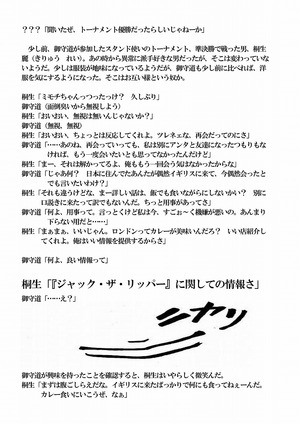 ？？？「聞いたぜ、トーナメント優勝だったらしいじゃねーか」
少し前、御守道が参加したスタンド使いのトーナメント、準決勝で戦った男、桐生
麗（きりゅう　れい）。あの時から異常に派手好きな男だったが、そこは変わっていな
いようだ。少しは服装が地味になっているようだが、御守道も少し前に比べれば、洋
服を気にするようになった。そこはお互い様という奴か。
桐生「ミモチちゃんっつったっけ？　久しぶり」
御守道（面倒臭いから無視しよう）
桐生「おいおい、無視は無いんじゃないか？」
御守道（無視、無視）
桐生「おいおい、ちょっとは反応してくれよ。ツレネェな、再会だってのにさ」
御守道「……あのね、再会っていっても、私は別にアンタと友達になったつもりもな
ければ、もう一度会いたいとも思ってなかったんだけど」
桐生「まー、それは解かってるよ、俺ももう一回会う気はなかったからな」
御守道「じゃあ何？　日本に住んでたあんたが偶然イギリスに来て、今偶然会ったと
でも言いたいわけ？」
桐生「それも違うけどな、まー詳しい話は、飯でも食いながらにしないかい？　別に
口説きに来たって訳でもないんだ。ちっとも用事があってさ」
御守道「何よ、用事って。言っとくけど私は今、すごぉ～く機嫌が悪いの。あんまり
下らない用だと……」
桐生「まぁまぁ、いいじゃん。ロンドンってカレーが美味いんだろ？　いい店紹介し
てくれよ。俺はいい情報を提供するからさ」
御守道「何よ、良い情報って」
桐生「『ジャック・ザ・リッパー』に関しての情報さ」
御守道「……え？」
ニヤリ
御守道が興味を持ったことを確認すると、桐生はいやらしく微笑んだ。
桐生「まずは腹ごしらえだな。イギリスに来たばっかりで何にも食ってねぇーんだ。
カレー食いにいこうぜ、なぁ」